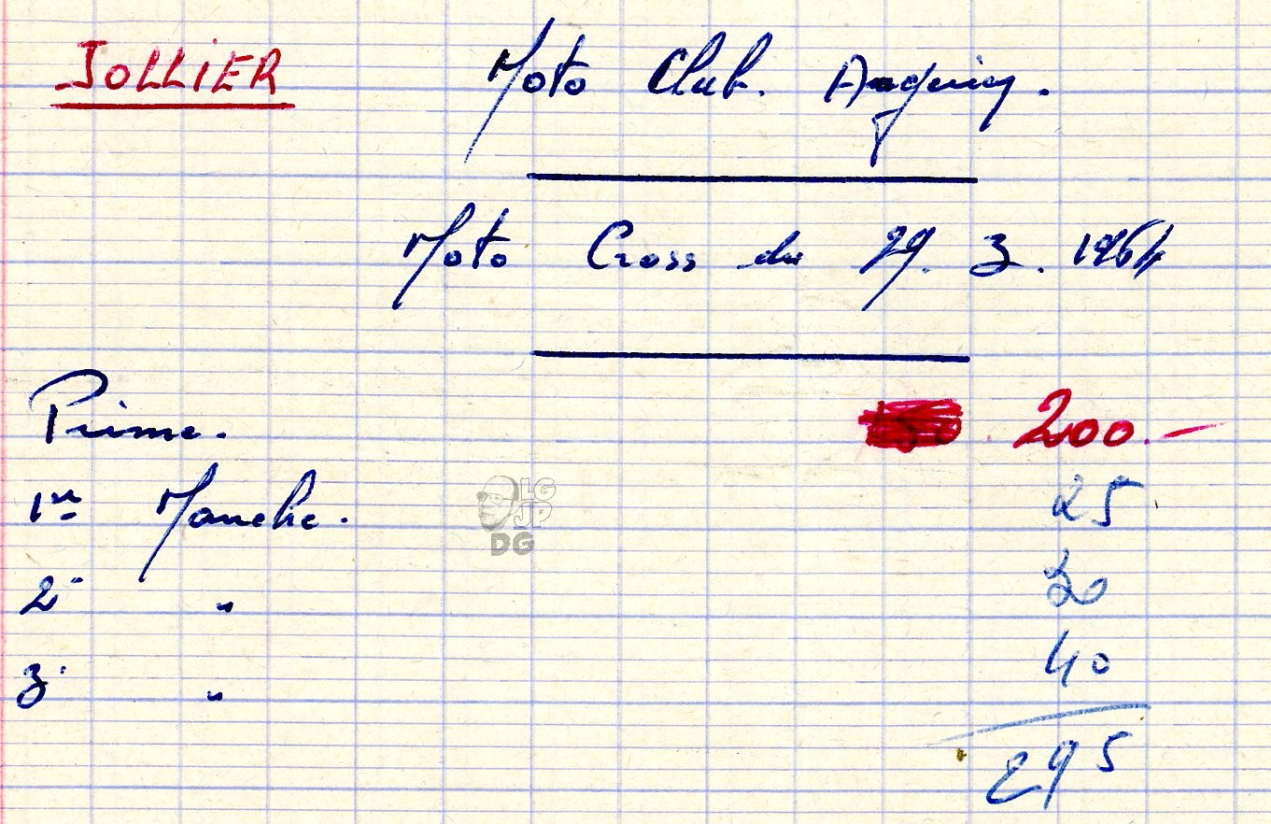 JOLLIER Moto Club.
Moto Cross du 29. 3. 1964
Prime. 200.-
1re Manche. 25
2e " 30
3e " 40
295
LG
JP
DG